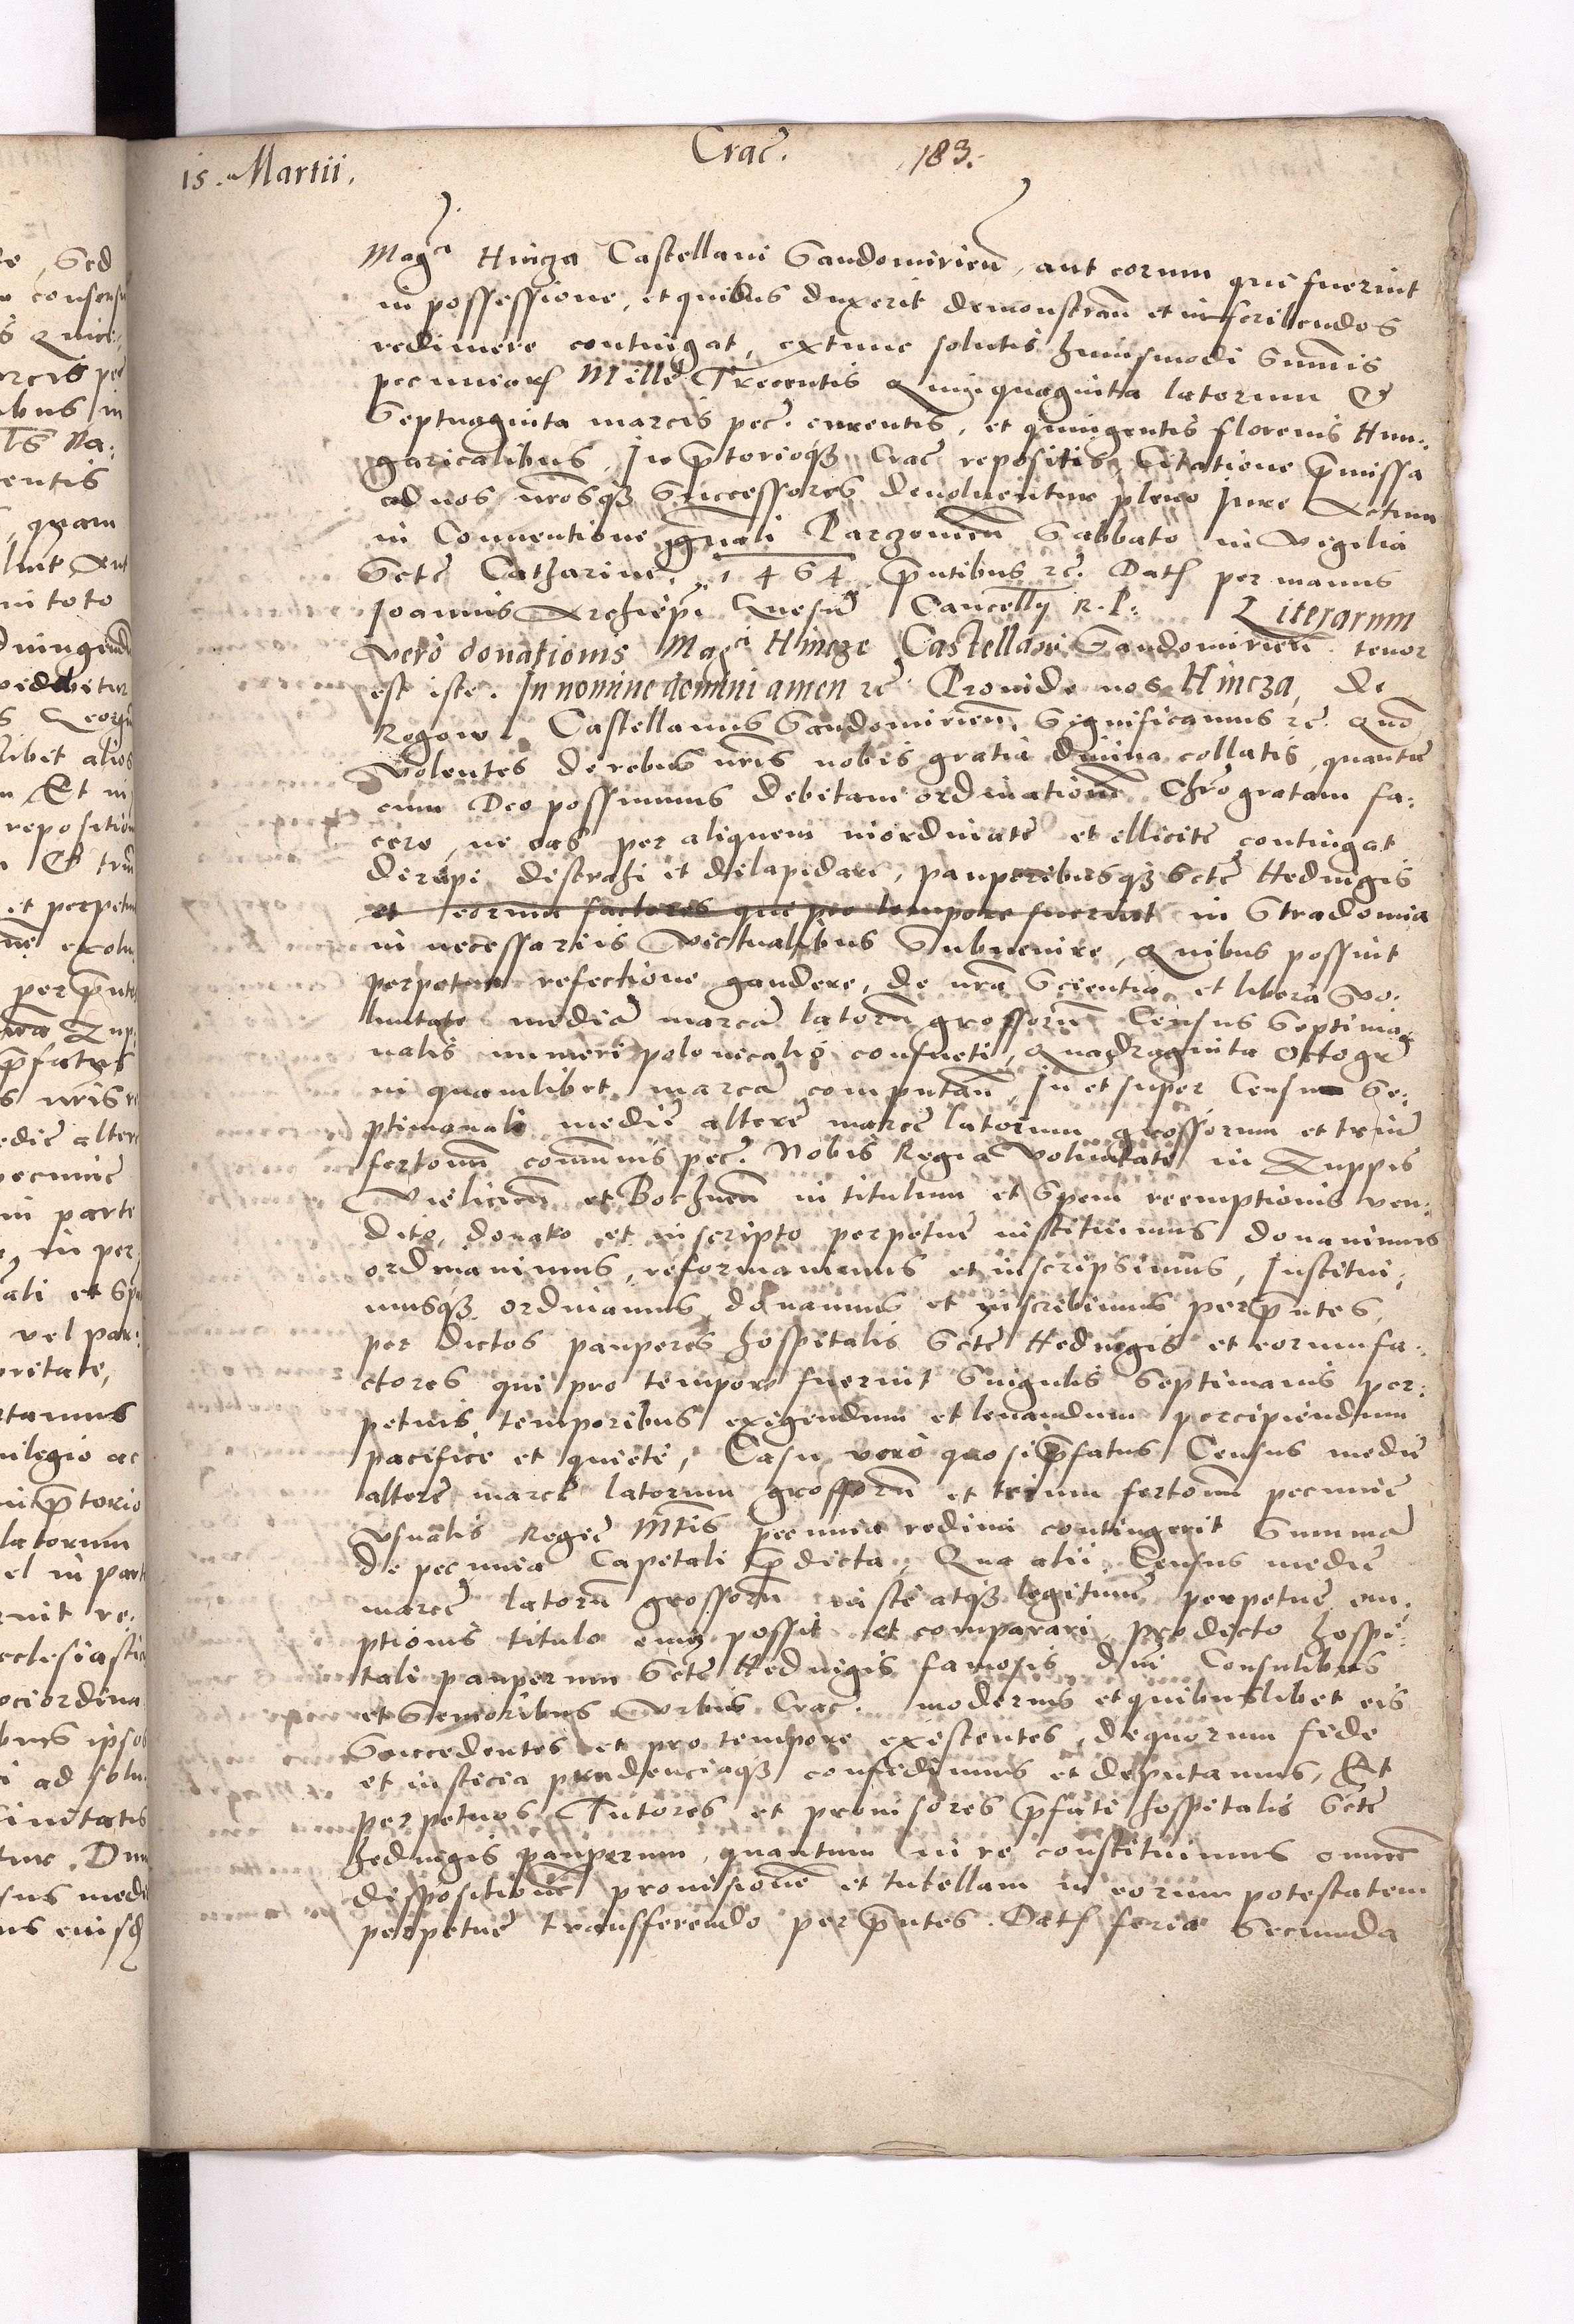 15. Martii.
Crac̄.
183.
Mag̃ci Hincza Castellani Sandomirien̄, aut eorum qui fuerint
in possessione, et quibus duxerit demonstran̄ et inscribendos
redimere contingat, extunc solutis huiusmodi Summis
pecuniarꝝ Mille Trecentis Quinquaginta latorum &
Septuaginta marcis pec̄. currentis, et quingentis florenis Hun:
garicalibus, In p̄torioqꝫ Crac̄ repositis, Citatione p̄missa
ad nos n̄rosqꝫ Successores devolventur pleno Jure Actum
in Conventione gn̄ali Parzovien̄ Sabbato in Vigilia
Sctē Catharinē. 1464 p̄ntibus rc̄. Datꝫ per manus
Joannis Archiep̄i Gnesn̄ Cancell̄ij R. P. Literarum
vero donationis Mag̃ci Hincze Castellani Sandomirien̄ tenor
est iste. In nomine domini amen rc̄ Proinde nos Hincza, de
Rogow Castellanus Sandomirien̄ Significamus rc̄. Quō
volentes de rebus n̄ris nobis gratia divina collatis, quantū
cum Deo possumus debitam ordinationē Chr̄o gratam fa:
cere, ne eas per aliquem inordinatē et ellicitē contingat
deripi distrahi et dilapidare, pauperibusqꝫ Sctē Hedvigis
et eorum factores qui pro tempore fuerint in Stradomia
in necessariis Victualibus Subvenire, Quibus possint
perpetua refectione gaudere, de n̄ra Scientia et libera Vo:
luntate mediā marcā latorū grossorū Census Septima:
nalis numeri polonicalis consueti, Quadraginta Octo gr̄
in quamlibet marcā computan̄, In et super Censu Se:
ptimanali mediē alterē marcē latorum grossorum et triū
fertonū com̄unis pec̄. Nobis Regia Voluntate in Zuppis
Vielicien̄ et Bochnen̄ in titulum et Spem reemptionis ven:
dito, donato et inscripto perpetuē instituimus donavimus
ordinavimus, reformavimus et inscripsimus, Institui:
musqꝫ ordinamus donamus et inscribimus per p̄ntes,
per dictos pauperes hospitalis Sctē Hedvigis et eorum fa:
ctores qui pro tempore fuerint Singulis Septimanis per:
petuis temporibus exigendum et levandum percipiendum
pacificē et quietē, Casu vero quo si p̄fatus Census mediē
alterē marcē latorum grossorū et trium fertonū pecuniē
usualis Regiē Mt̄is pecunia redimi contingerit Summā
de pecunia Capitali p̄dicta, Qua alii Census mediē
marcē latorū grossorū iustē atqꝫ legitimē perpetuē em:
ptionis titulo emi possit et comparari prodicto hospi:
tali pauperum Sctē Hedvigis famosis dn̄i Consulibus
et Senioribus Urbis Crac. modernis et quibuslibet eis
Succedentes et pro tempore existentes, de quorum fide
et iusticia prudenciaqꝫ confidimus et deputamus, Et
perpetuos Tutores et provisores p̄fati hospitalis Sctē
hedvigis pauperum, quantum in re constituimus omnē
dispositionē provisionē et tutellam in eorum potestatem
perpetuē transferendo per p̄ntes. Datꝫ feria Secunda